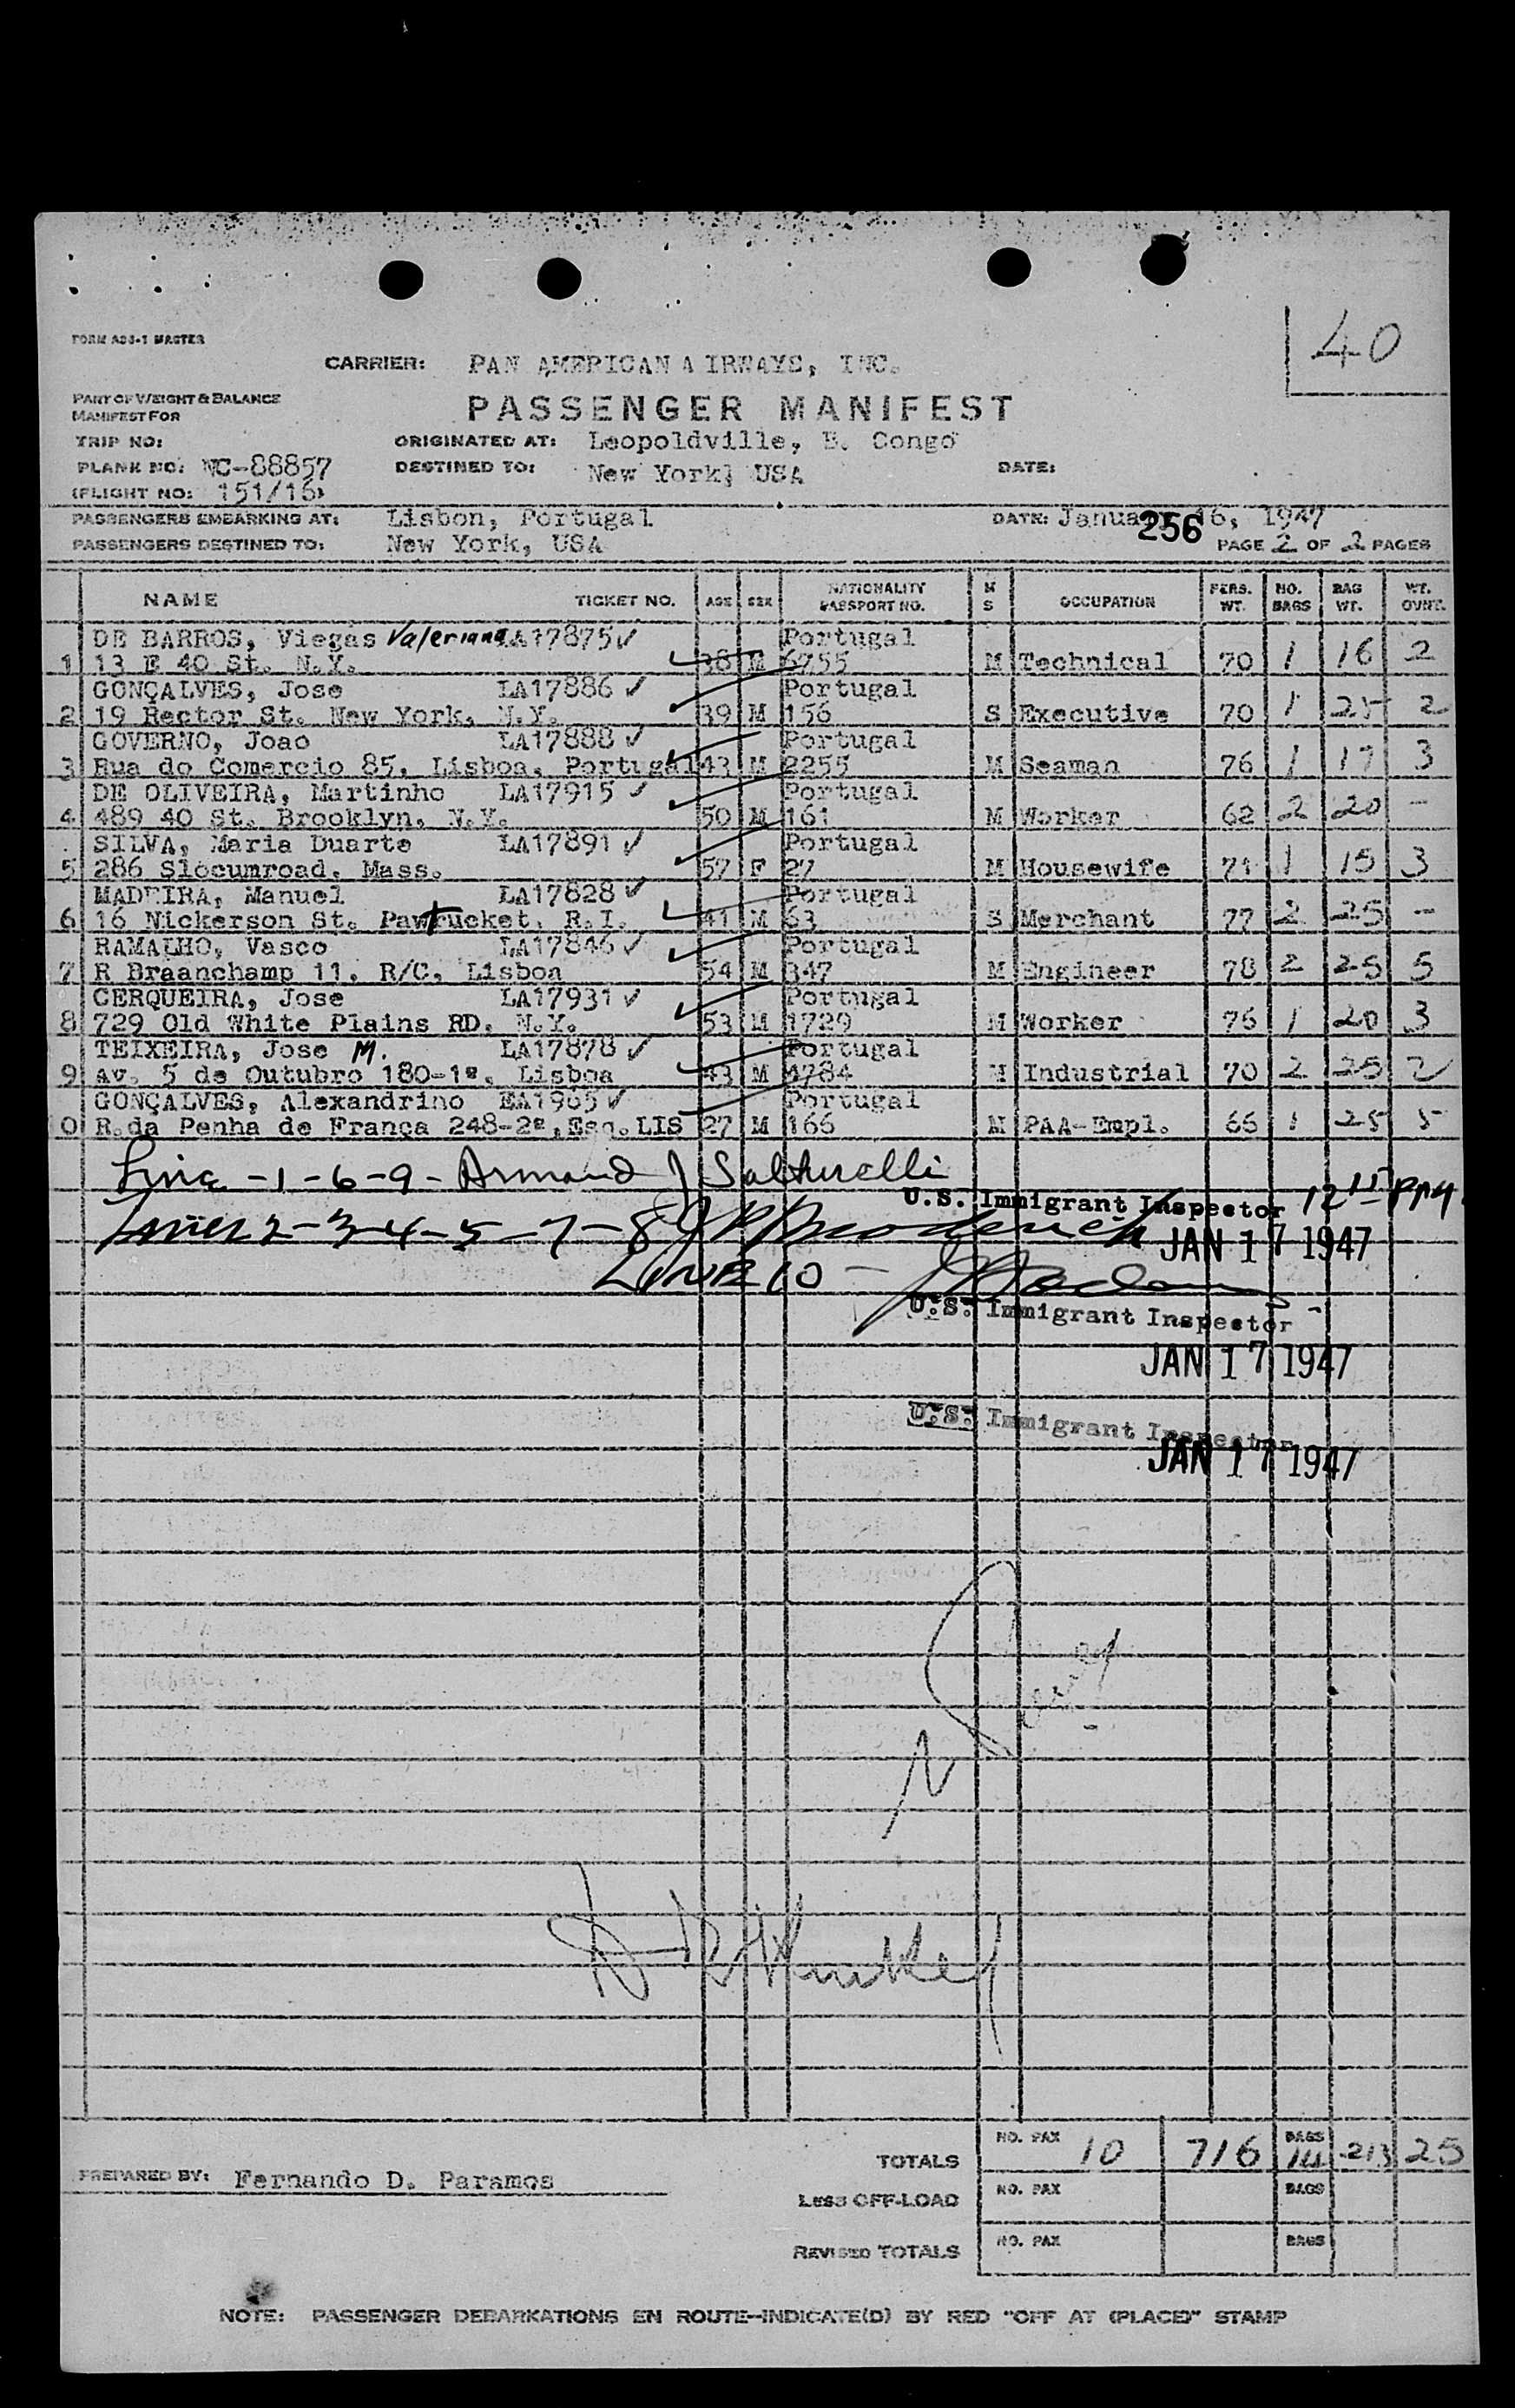 40
FORM ADS-1 MASTER
CARRIER: PAN AMERICAN AIRWAYS, INC.
PART OF WEIGHT & BALANCE
MANIFEST FOR
PASSENGER MANIFEST
TRIP NO:
ORIGINATED AT: Leopoldville, B. Congo
PLANE NO: NC-88857
DESTINED TO: New York, USA
DATE:
(FLIGHT NO: 151/16)
PASSENGERS EMBARKING AT: Lisbon, Portugal
DATE: January 16, 1947
256
PASSENGERS DESTINED TO: New York, USA
PAGE 2 OF 2 PAGES
NAME TICKET NO. AGE SEX NATIONALITY PASSPORT NO. M S OCCUPATION PERS. WT. NO. BAGS BAG WT. WT. OVHT.
DE BARROS, Viegas Valeriano LA17875 ✓ Portugal
1 13 E 40 St. N.Y. 38 M 6755 M Technical 70 1 16 2
GONÇALVES, Jose LA17886 ✓ Portugal
2 19 Rector St. New York, N.Y. 39 M 156 S Executive 70 1 25 2
GOVERNO, Joao LA17888 ✓ Portugal
3 Rua do Comercio 85, Lisboa, Portugal 43 M 2255 M Seaman 76 1 17 3
DE OLIVEIRA, Martinho LA17915 ✓ Portugal
4 489 40 St. Brooklyn, N.Y. 50 M 161 M Worker 62 2 20 -
SILVA, Maria Duarte LA17891 ✓ Portugal
5 286 Slocumroad, Mass. 57 F 27 M Housewife 71 1 15 3
MADEIRA, Manuel LA17828 ✓ Portugal
6 16 Nickerson St. Pawtrucket, R.I. 41 M 63 S Merchant 77 2 25 -
RAMALHO, Vasco LA17846 ✓ Portugal
7 R Braanchamp 11, R/C, Lisboa 54 M 347 M Engineer 78 2 25 5
CERQUEIRA, Jose LA17931 ✓ Portugal
8 729 Old White Plains RD, N.Y. 53 M 1729 M Worker 76 1 20 3
TEIXEIRA, Jose M. LA17878 ✓ Portugal
9 Av. 5 de Outubro 180-1º, Lisboa 43 M 4784 M Industrial 70 2 25 2
GONÇALVES, Alexandrino EA1965 ✓ Portugal
0 R.da Penha de França 248-2º,Esq.LIS 27 M 166 M PAA-Empl. 66 1 25 5
Line -1-6-9- Armand J
U.S. Immigrant Inspector
Lines 2-3-4-5-7-8
JAN 17 1947
LINE 10 -
U.S. Immigrant Inspector
JAN 17 1947
U.S. Immigrant Inspector
JAN 17 1947
TOTALS NO. PAX 10 716 BAGS 14 213 25
PREPARED BY: Fernando D. Paramos
LESS OFF-LOAD NO. PAX BAGS
REVISED TOTALS NO. PAX BAGS
NOTE: PASSENGER DEBARKATIONS EN ROUTE—INDICATE(D) BY RED "OFF AT (PLACE)" STAMP